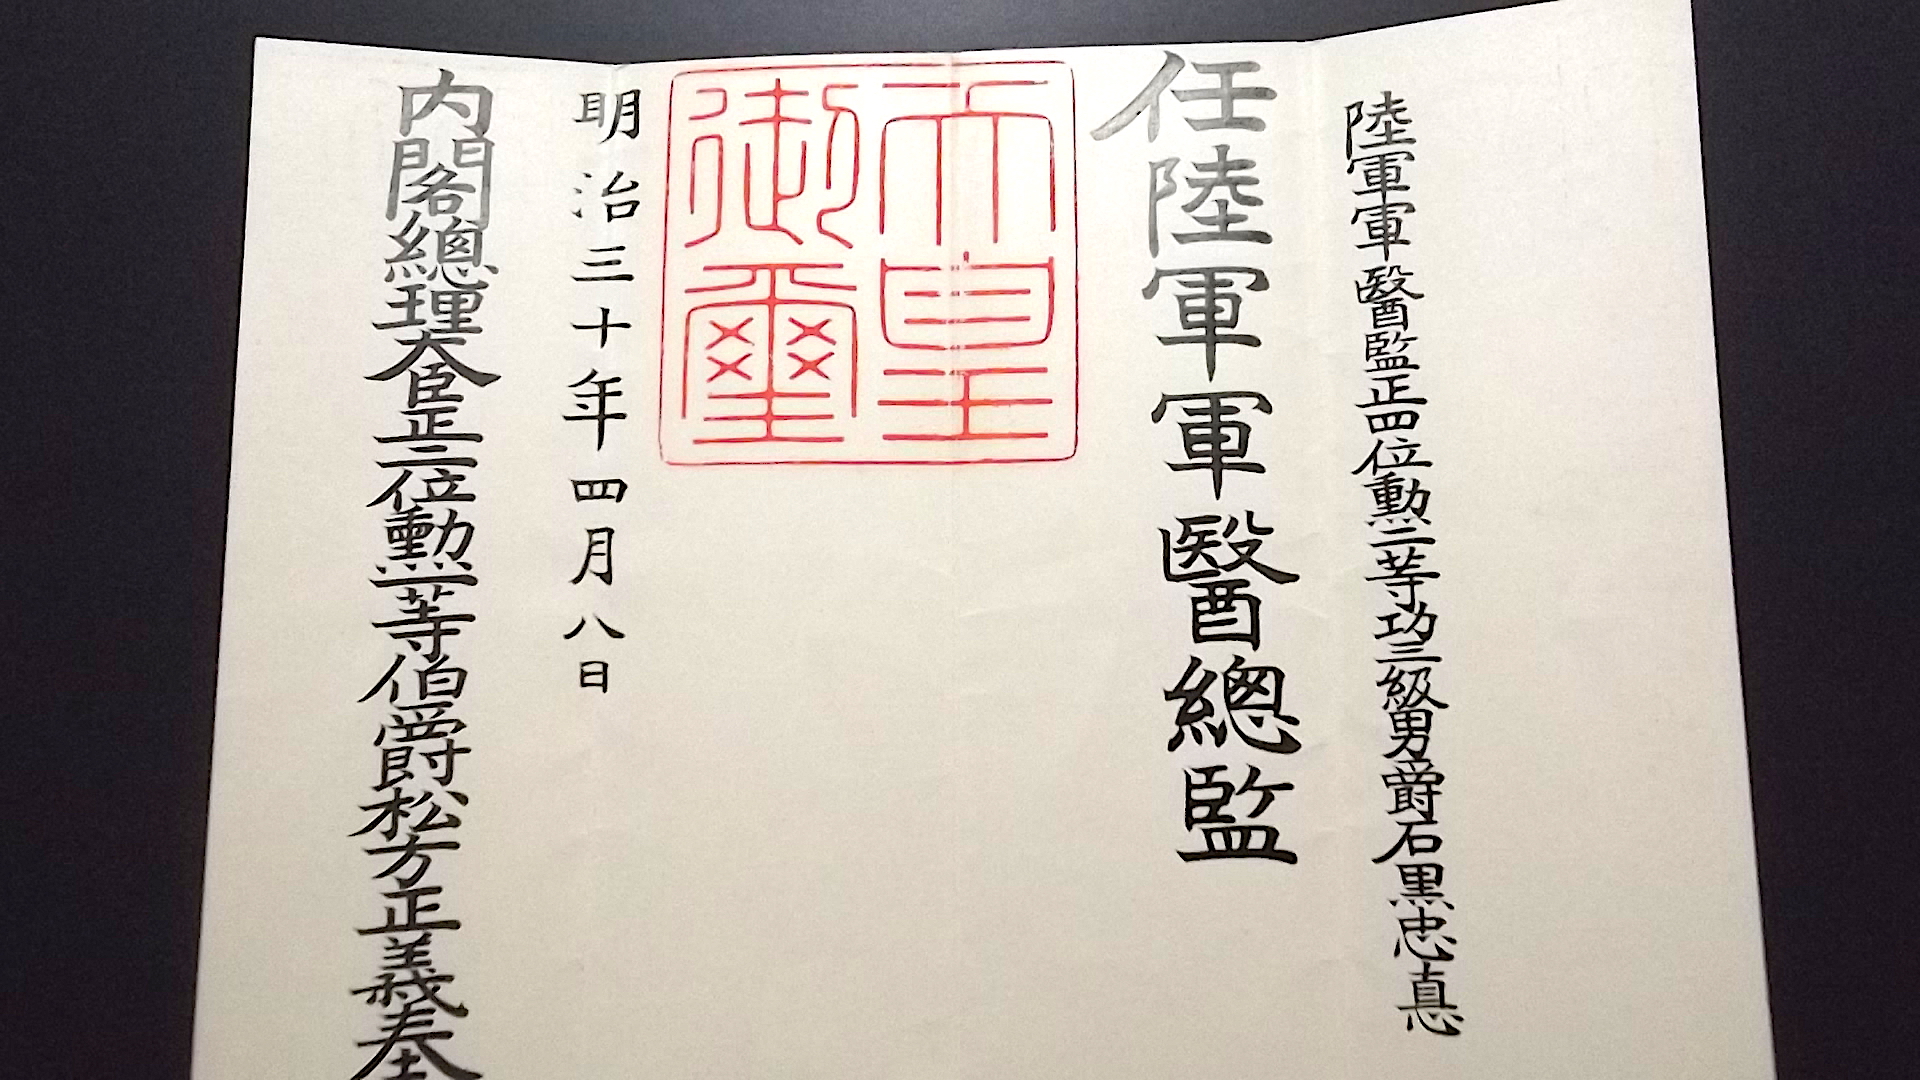 陸軍軍醫監正四位勲二等功三級男爵石黒忠悳
任陸軍軍醫總監
天皇御璽
明治三十年四月八日
内閣總理大臣正二位勲一等伯爵松方正義奉